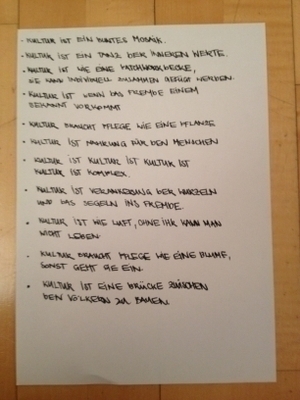 - KULTUR IST EIN BUNTES MOSAIK.
- KULTUR IST EIN TANZ DER INNEREN WERTE.
- KULTUR IST WIE EINE PATCHWORKDECKE,
SIE KANN INDIVIDUELL ZUSAMMEN GEFÜGT WERDEN.
- KULTUR IST WENN DAS FREMDE EINEM
BEKANNT VORKOMMT
- KULTUR BRAUCHT PFLEGE WIE EINE PFLANZE
- KULTUR IST NAHRUNG FÜR DEN MENSCHEN
- KULTUR IST KULTUR IST KULTUR IST
KULTUR IST KOMPLEX.
- KULTUR IST VERANKERUNG DER WURZELN
UND DAS SEGELN INS FREMDE.
- KULTUR IST WIE LUFT, OHNE IHR KANN MAN
NICHT LEBEN
- KULTUR BRAUCHT PFLEGE WIE EINE BLUME,
SONST GEHT SIE EIN.
- KULTUR IST EINE BRÜCKE ZWISCHEN
DEN VÖLKERN ZU BAUEN.